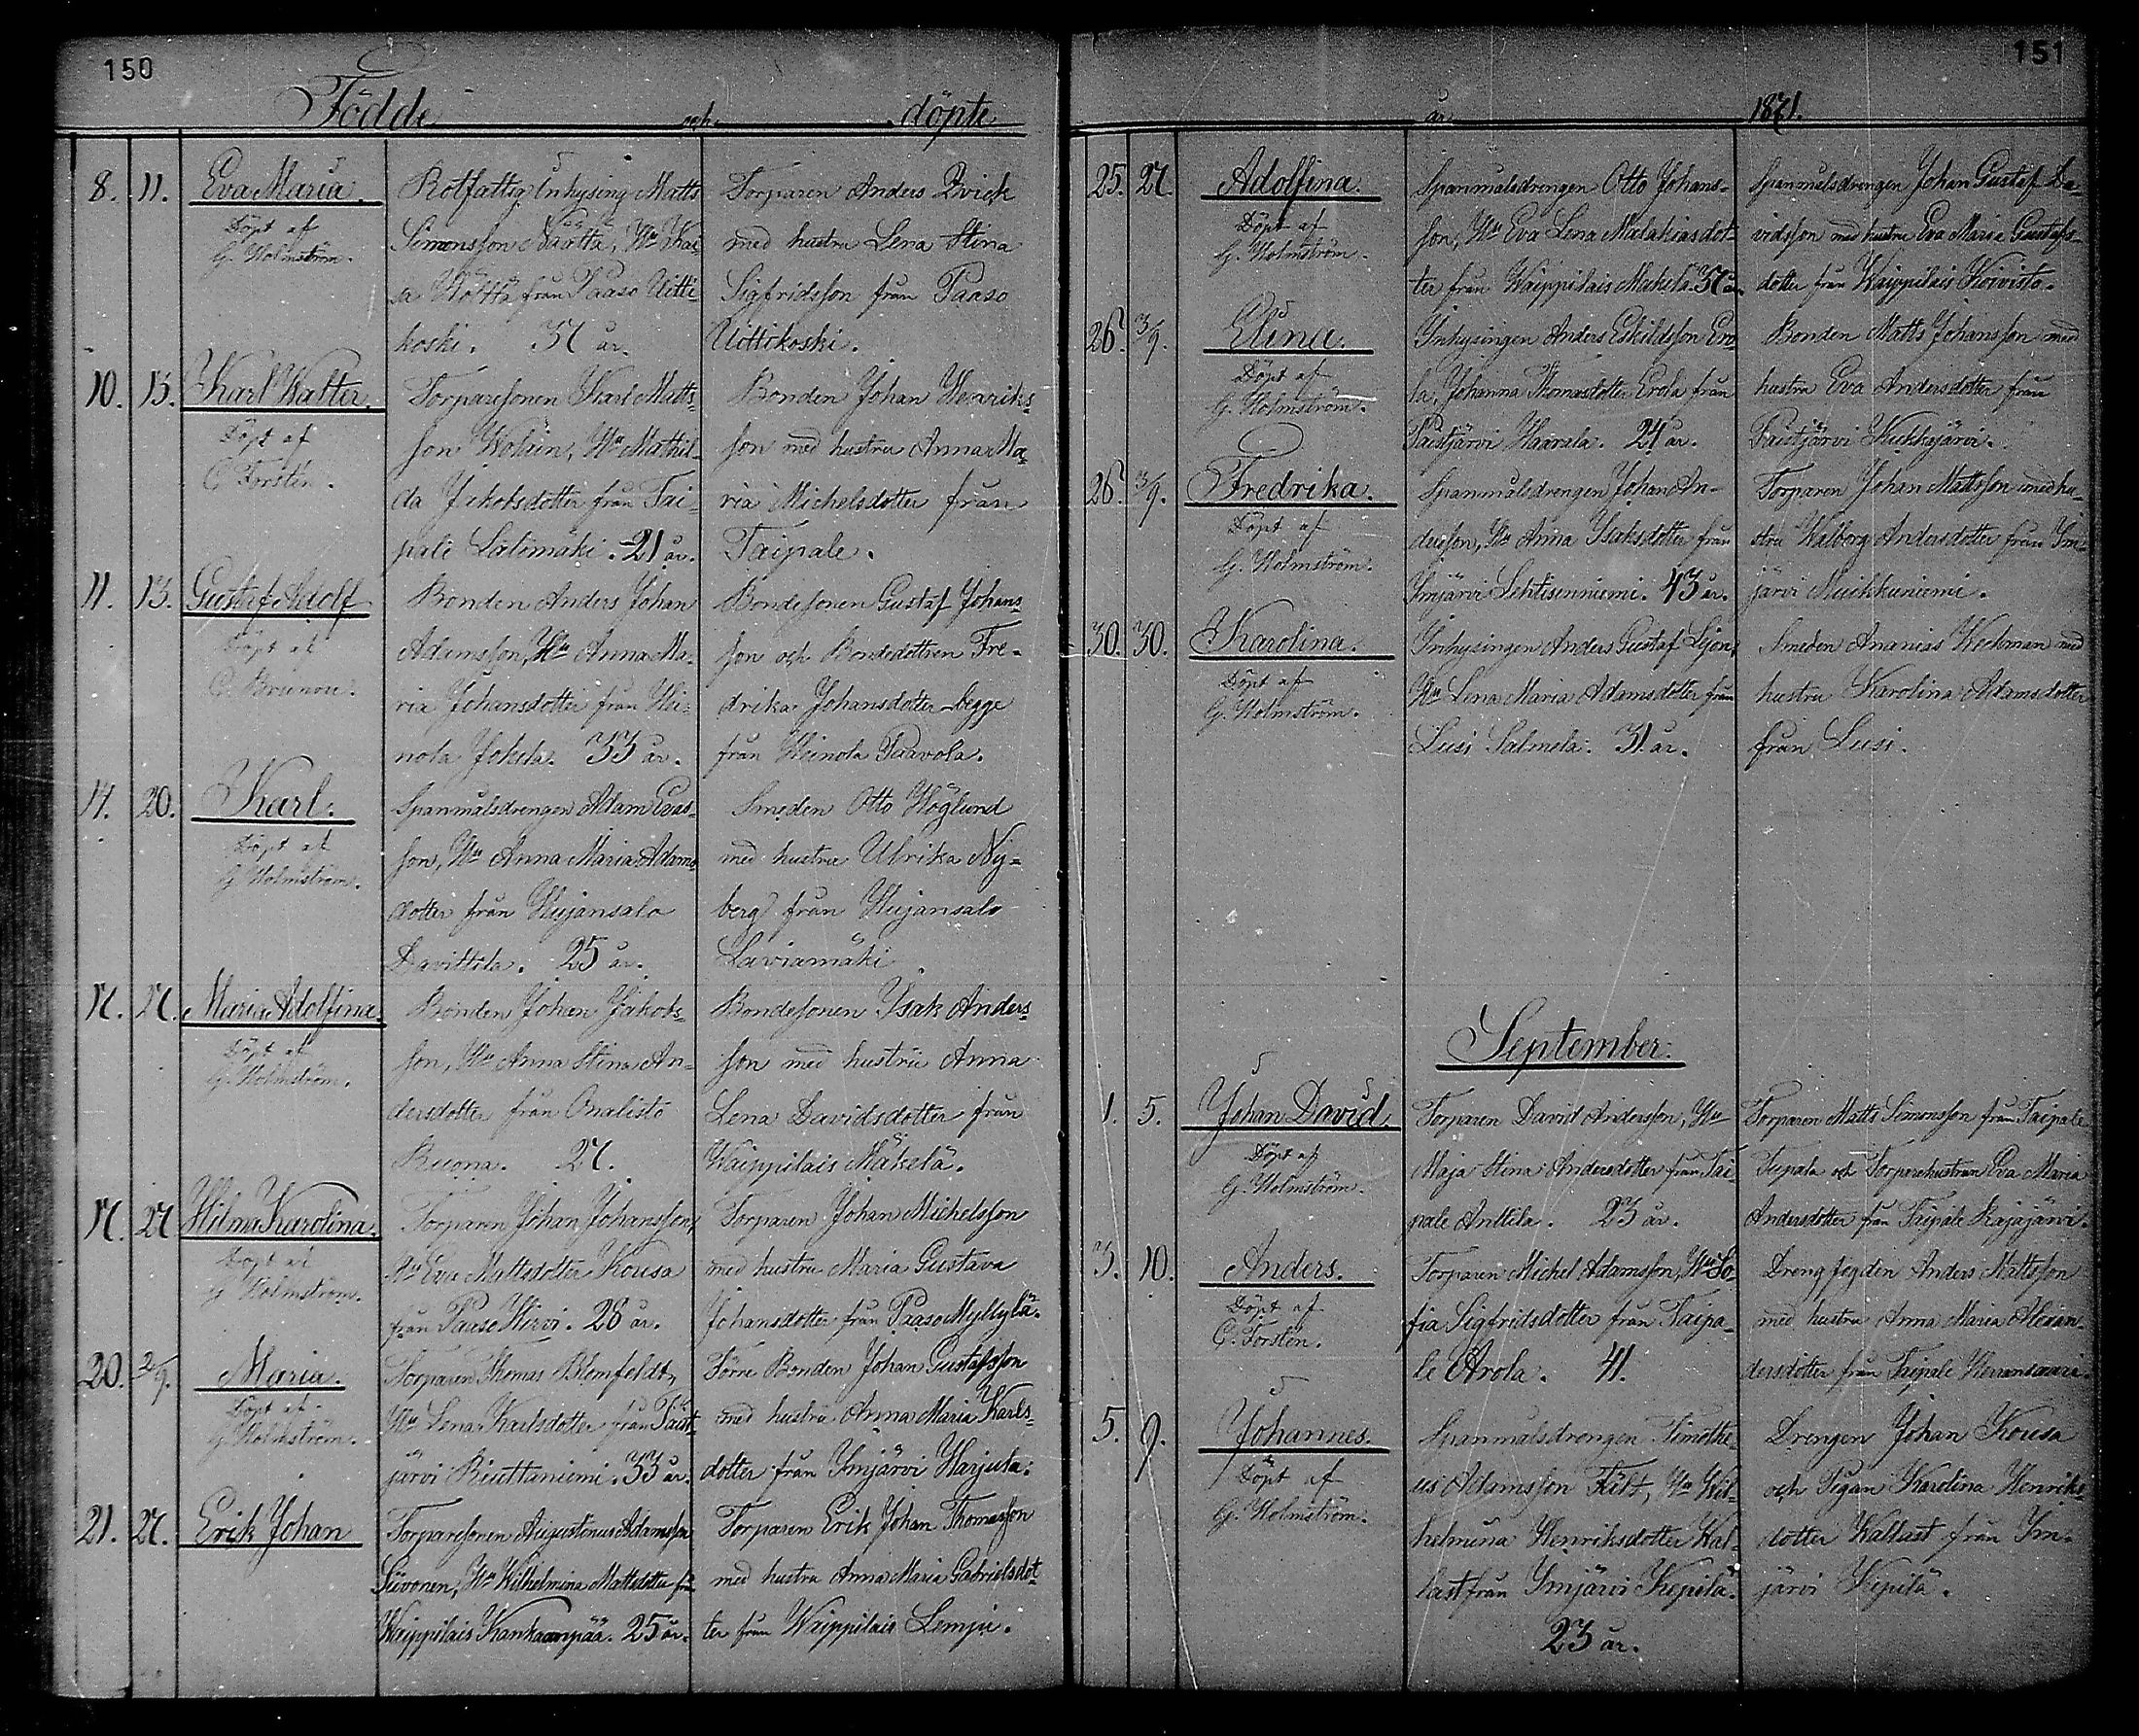 150
Födde och döpte
8. 11. Eva Maria.
Döpt af
G. Holmström.
Rotfattig Inhysing Matts
Simonsson Näättä, Hu Kai-
sa Hölttä från Paaso Uitti-
koski. 37 år.
Torparen Anders Qvick
med hustru Lena Stina
Sigfridsson från Paaso
Uittikoski.
10. 13. Karl Walter.
Döpt af
C. Forstén.
Torparesonen Karl Matts-
son Wolain, Hu Mathil-
da Jakobsdotter från Tai-
pale Lälimäki. 21 år.
Bonden Johan Henriks-
son med hustru Anna Ma-
ria Michelsdotter från
Taipale.
11. 13. Gustaf Adolf
Döpt af
C. Brunou.
Bonden Anders Johan
Adamsson, Hu Anna Ma-
ria Johansdotter från Hei-
nola Jokela. 33 år.
Bondesonen Gustaf Johans-
son och Bondedottren Fre-
drika Johansdotter begge
från Heinola Paavola.
14. 20. Karl.
Döpt af
G. Holmström.
Spanmålsdrengen Adam Evas-
son, Hu Anna Maria Adams-
dotter från Hujansalo
Davittila. 25 år.
Smeden Otto Höglund
med hustru Ulrika Ny-
berg från Hujansalo
Laviamäki
17. 27. Maria Adolfina.
Döpt af
G. Holmström.
Bonden Johan Jakobs-
son, Hu Anna Stina An-
dersdotter från Onalisto
Buona. 27.
Bondesonen Isak Anders-
son med hustru Anna
Lena Davidsdotter från
Waippilais Mäkelä.
17. 27 Hilma Karolina.
Döpt af
G. Holmström.
Torparen Johan Johansson,
Hu Eva Mattsdotter Kousa
från Paaso Hirvi. 28 år.
Torparen Johan Michelsson
med hustru Maria Gustava
Johansdotter från Paaso Myllylä.
20. 3/9. Maria.
Döpt af
G. Holmström.
Torparen Thomas Blomfeldt,
Hu Lena Karlsdotter från Paist-
järvi Ruuttaniemi. 33 år.
Förre Bonden Johan Gustafsson
med hustru Anna Maria Karls-
dotter från Imjärvi Harjula.
21. 27. Erik Johan
Torparesonen Augustinus Adamsson
Siivonen, Hu Wilhelmina Mattsdotter från
Waippilais Kankaanpää. 25 år.
Torparen Erik Johan Thomasson
med hustru Anna Maria Gabrielsdot-
ter från Waippilais Lempii.
151
år 1871.
25. 27. Adolfina.
Döpt af
G. Holmström.
Spanmålsdrengen Otto Johans-
son, Hu Eva Lena Malakiasdot-
ter från Waippilais Makela. 37 år.
Spanmålsdrengen Johan Gustaf Da-
vidsson med hustru Eva Maria Gustafs-
dotter från Waippilais Koivisto.
26. 3/9. Elina.
Döpt af
G. Holmström.
Inhysingen Anders Eskildsson Ero-
la, Johanna Thomasdotter Erola från
Paistjärvi Haarala. 24 år.
Bonden Matts Johansson med
hustru Eva Andersdotter från
Paistjärvi Kukkojärvi.
26. 3/9. Fredrika.
Döpt af
G. Holmström.
Spanmålsdrengen Johan An-
dersson, Hu Anna Isaksdotter från
Imjärvi Lehtisenniemi. 43 år.
Torparen Johan Mattsson med hu-
stru Walborg Andersdotter från Im-
järvi Muikkuniemi.
30. 30. Karolina.
Döpt af
G. Holmström.
Inhysingen Anders Gustaf Lejon,
Hu Lena Maria Adamsdotter från
Lusi Salmela. 31 år.
Smeden Ananias Weckman med
hustru Karolina Adamsdotter
från Lusi.
September.
1. 5. Johan David.
Döpt af
G. Holmström.
Torparen David Andersson, Hu
Maja Stina Andersdotter från Tai-
pale Anttila. 23 år.
Torparen Matts Simonsson från Taipale
Tupala och Torparehustrun Eva Maria
Andersdotter från Taipale Rajajärvi.
3. 10. Anders.
Döpt af
C. Forstén.
Torparen Michel Adamsson, Hu So-
fia Sigfridsdotter från Taipa-
le Arola. 41.
Drengfogden Anders Mattsson
med hustru Anna Maria Alexan-
dersdotter från Taipale Herransaari.
5. 9. Johannes.
Döpt af
G. Holmström.
Spanmålsdrengen Timothe-
us Adamsson Fält, Hu Wil-
helmina Henriksdotter Wal-
last från Imjärvi Kepilä.
23 år.
Drengen Johan Kousa
och Pigan Karolina Henriks-
dotter Wallast från Im-
järvi Kepilä.